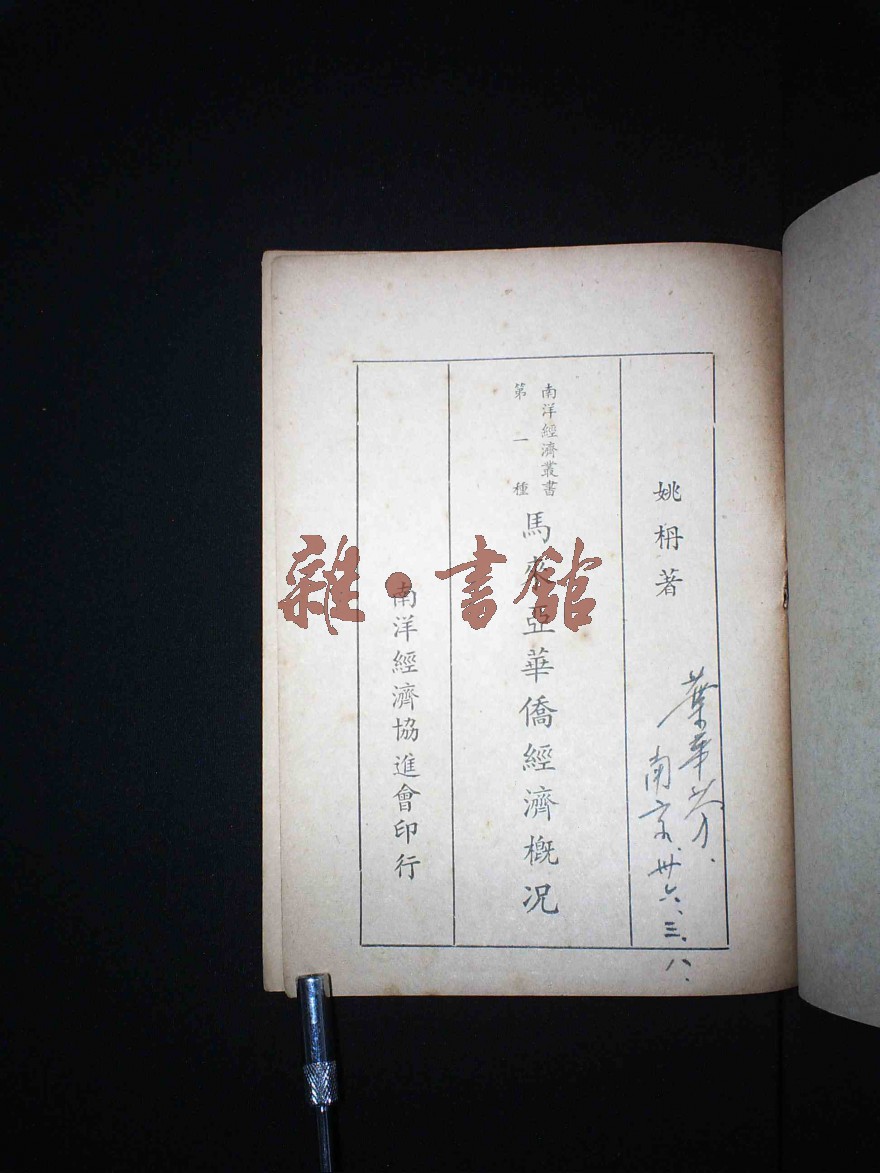 姚枬著
葉華芬.
南京.卅六、三、八.
南洋經濟叢書
第一種
馬來亞華僑經濟概况
南洋經濟協進會印行
雜·書館